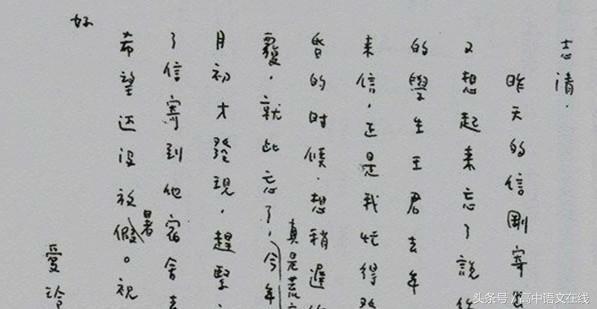 志清，
昨天的信剛寄
又想起来忘了說
的學生王君去年
来信，正是我忙得
昏的时候，想稍遲
覆，就此忘了，今年
真是荒
月初才發現，趕緊
了信寄到他宿舍去
希望还没放暑假。祝
好
愛玲
头条号/高中语文在线